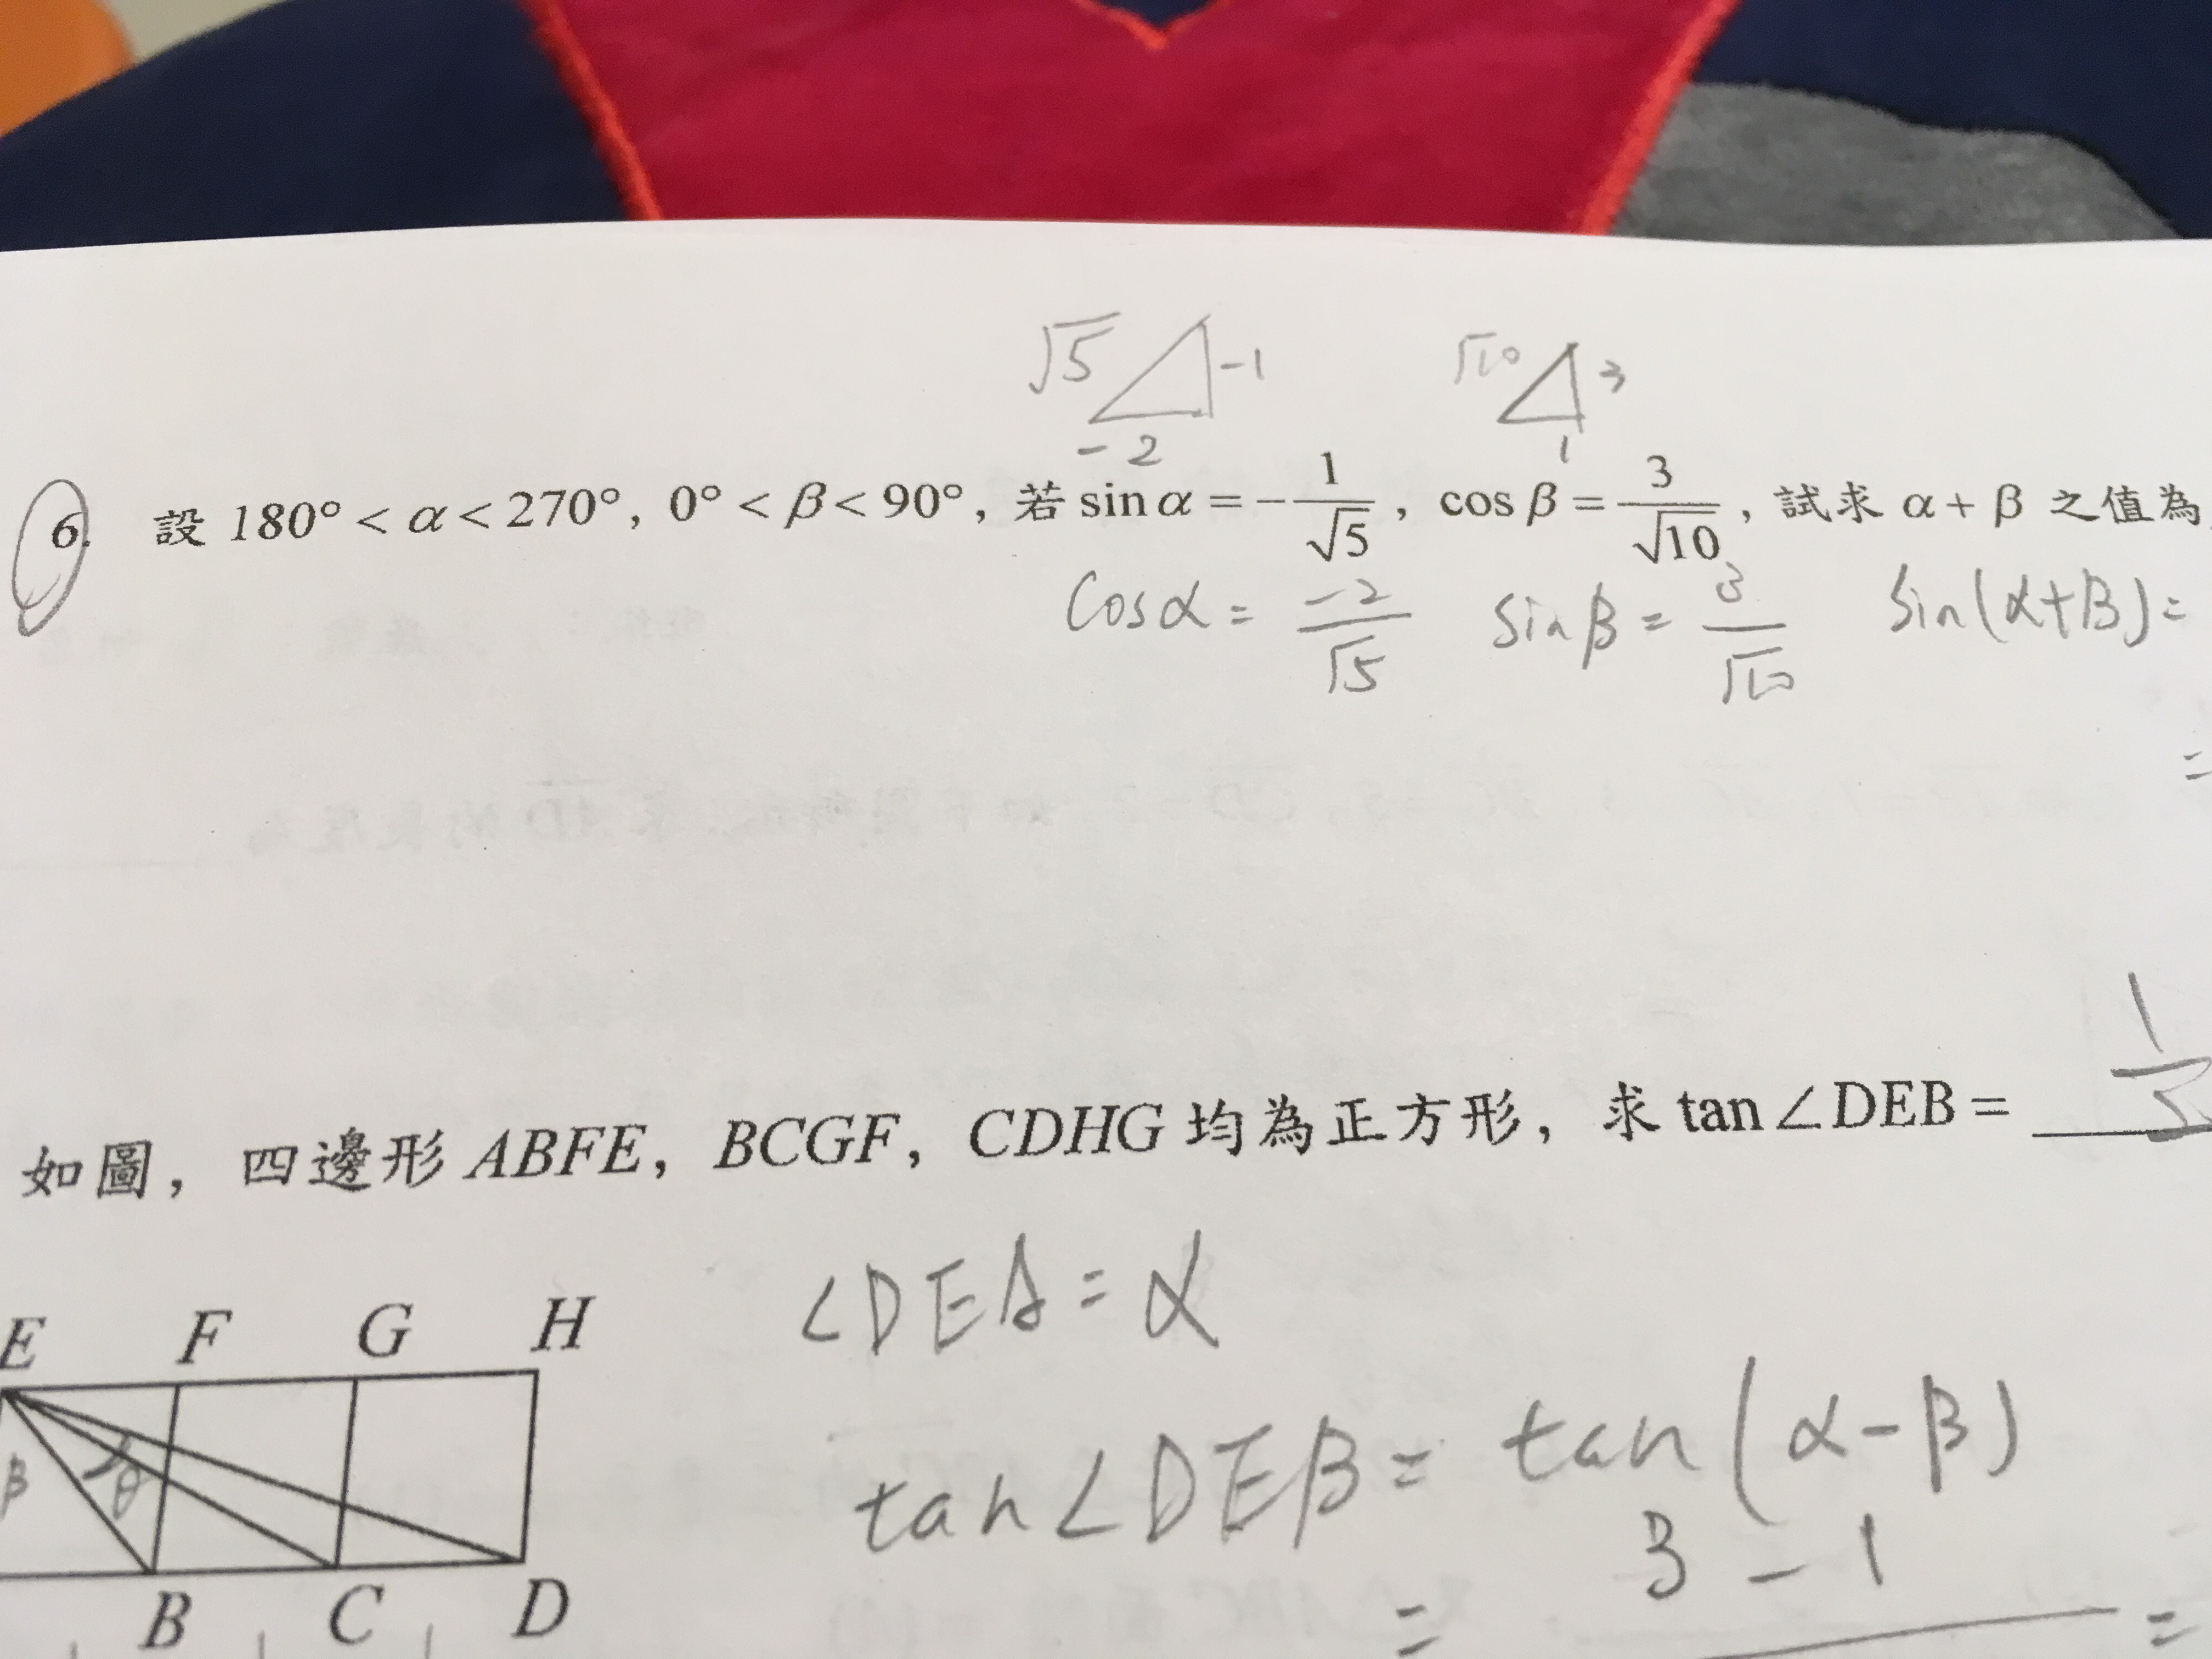 √5 -1 √10 3
-2 1
6. 設 180° < α < 270°, 0° < β < 90°, 若 sin α = -1/√5, cos β = 3/√10, 試求 α + β 之值為
Cosα = -2/√5 Sinβ = 3/√10 Sin(α+β)=
=
如圖, 四邊形 ABFE, BCGF, CDHG 均為正方形, 求 tan∠DEB =
∠DEA = α
E F G H
tan∠DEB = tan(α-β)
β θ
= 3-1 =
B C D